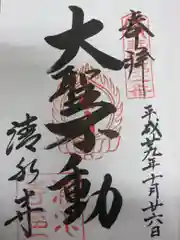 奉拝
平成廿九年十一月廿六日
大聖不動
清水寺